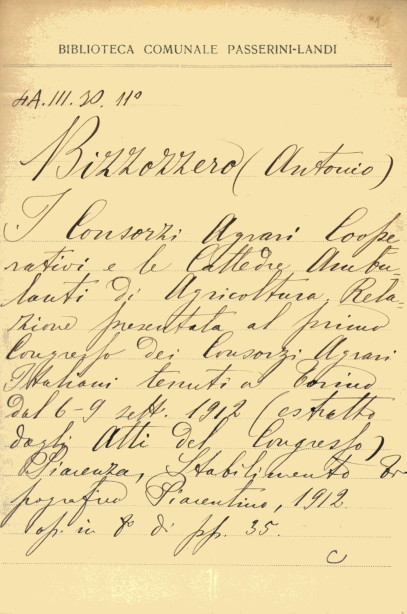 BIBLIOTECA COMUNALE PASSERINI-LANDI
4A.III.20.11º
Bizzozzero (Antonio)
I Consorzi Agrari Coope
rativi e le Cattedre Ambu-
lanti di Agricoltura. Rela-
zione presentata al primo
Congresso dei Consorzi Agrari
Italiani tenuti a Torino
dal 6-9 sett. 1912 (estratto
dagli Atti del Congresso)
Piacenza, Stabilimento Ti-
pografico Piacentino, 1912
op. in 8º di pp. 35.
C